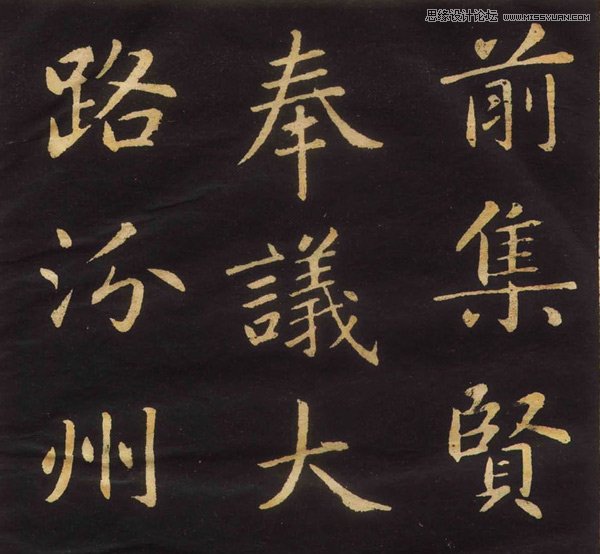 思缘设计论坛 WWW.MISSYUAN.COM
前集賢
奉議大
路汾州